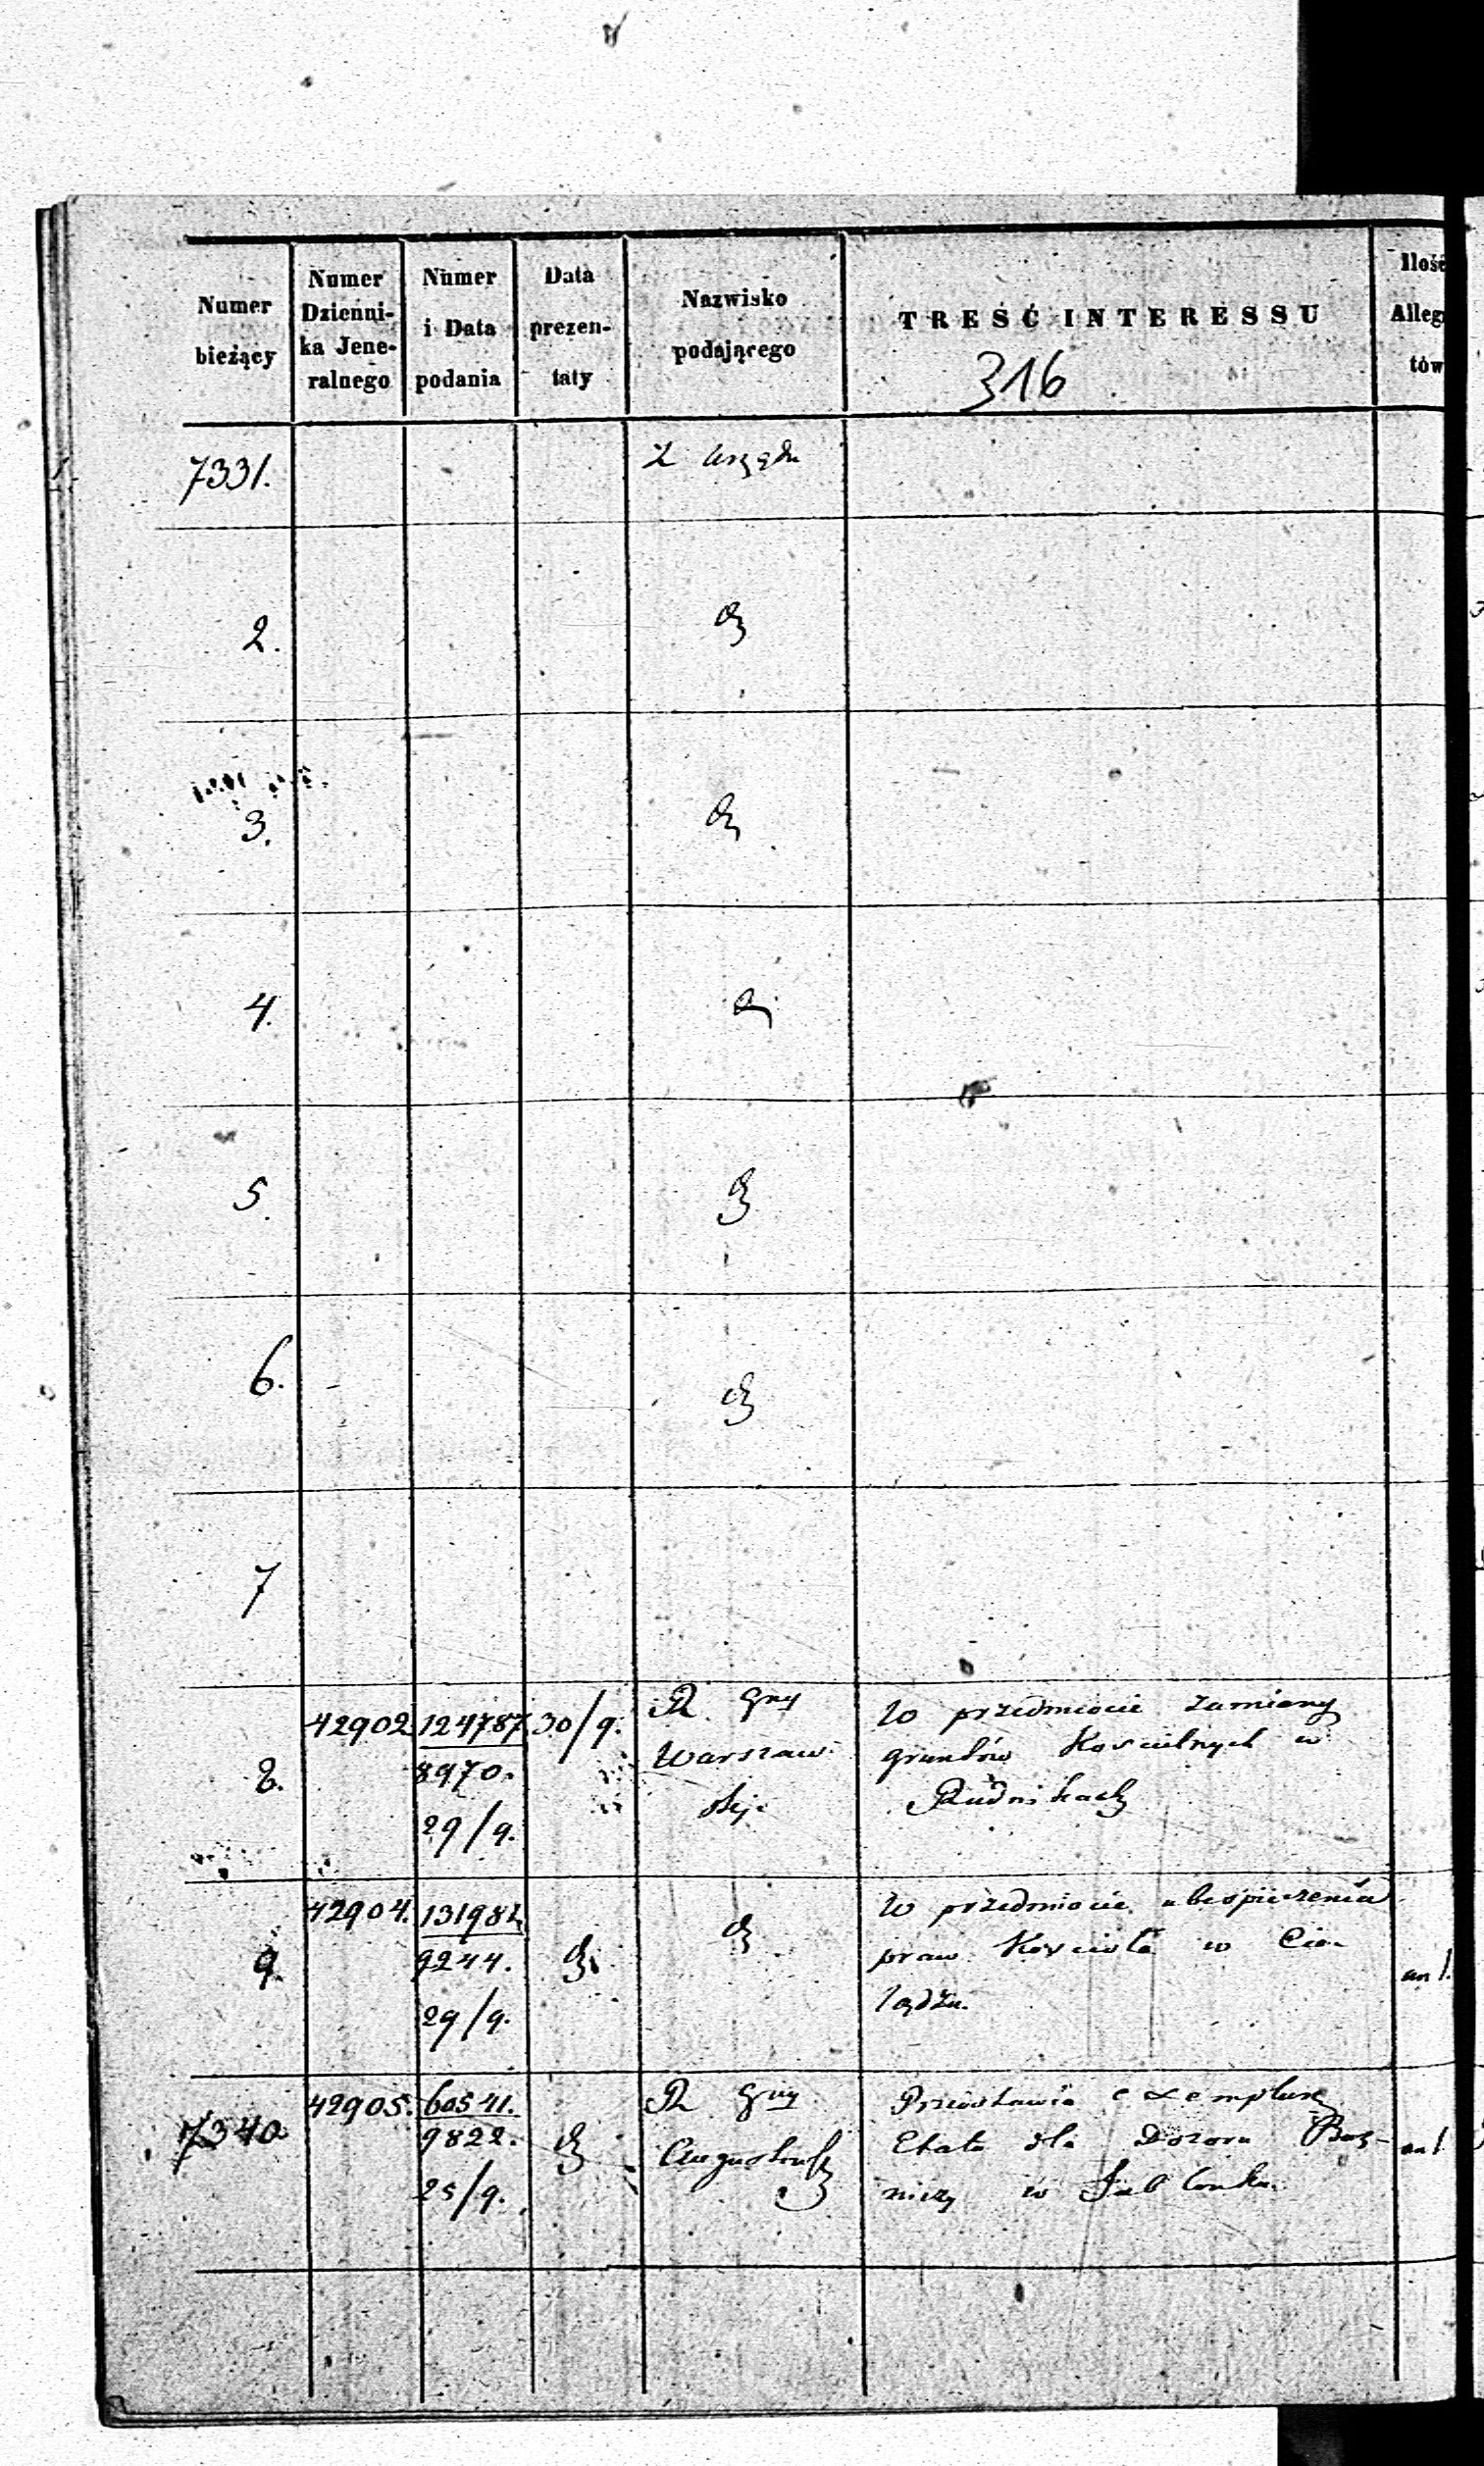 Numer bieżący
Numer Dzienni-ka Jene-ralnego
Numer i Data podania
Data prezen-taty
Nazwisko podającego
TREŚĆ INTERESSU
Ilość Alleg tów
316
7331.
Z urzędu
2.
3.
4.
5.
6.
7
8.
42902
124787
8970.
29/9.
30/9.
R. Gny
Warszaw
skiej
W przedmiocie zamiany
gruntów Kościelnych w
Rudnikach
9.
42904.
131982
9244.
29/9.
W przedmiocie ubespieczenia
praw Kościoła w Cio-
lądzu.
an 1.
7340
42905.
60541.
9822.
25/9.
R. Gny
Augustowsk
Przedstawia exemplarz
Etatu dla Dozoru Boż-
niczy w Jabłonka.
an 1